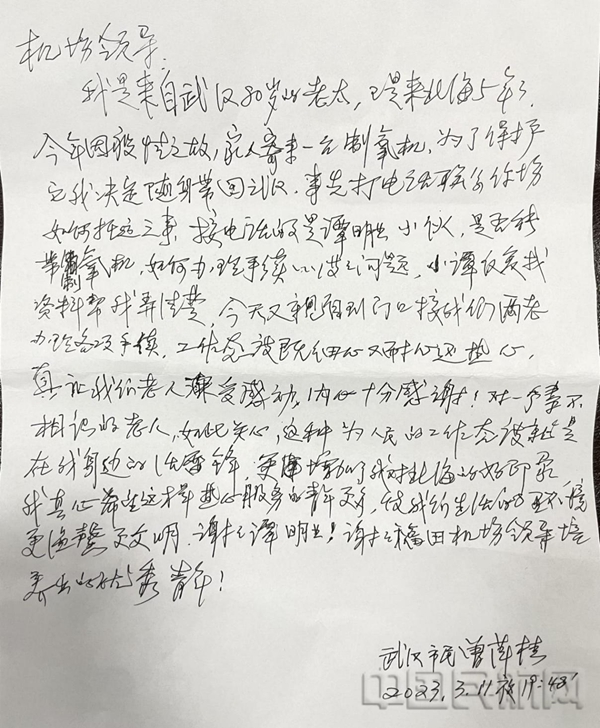 机场领导:
我是来自武汉80岁的老太,已是来北海5年了,
今年因疫情之故,家人寄来一台制氧机,为了保护
它我决定随身带回武汉,事先打电话联系你场
如何托运之事,接电话的是谭明 小伙,是否能
带制氧机,如何办理手续 问题,小谭仅夜找
资料帮我弄清楚,今天又亲自到门口接我们两老
办理各项手续,工作态度既细心又耐心还热心,
真让我们老人深受感动,内心十分感谢!对一个素不
相识的老人,如此关心,这种为人民的工作态度就是
在我身边的活雷锋,更增加了我对北海的好印象,
我真心希望这样热心服务的青年更多,使我们生活的环境
更温馨更文明,谢谢谭明 !谢谢福田机场领导培
养出的优秀青年!
武汉市民曾萍桂
2023.3.11夜19:48
中国民航网